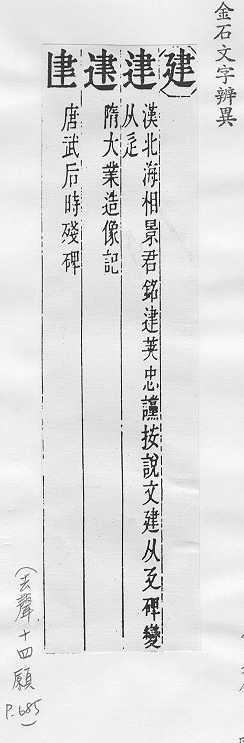 金石文字辨異
建
䢖 漢北海相景君銘䢖莢忠讜按說文建从廴碑變
从辵
隋大業造像記
唐武后時殘碑
(去聲十四願 P.685)